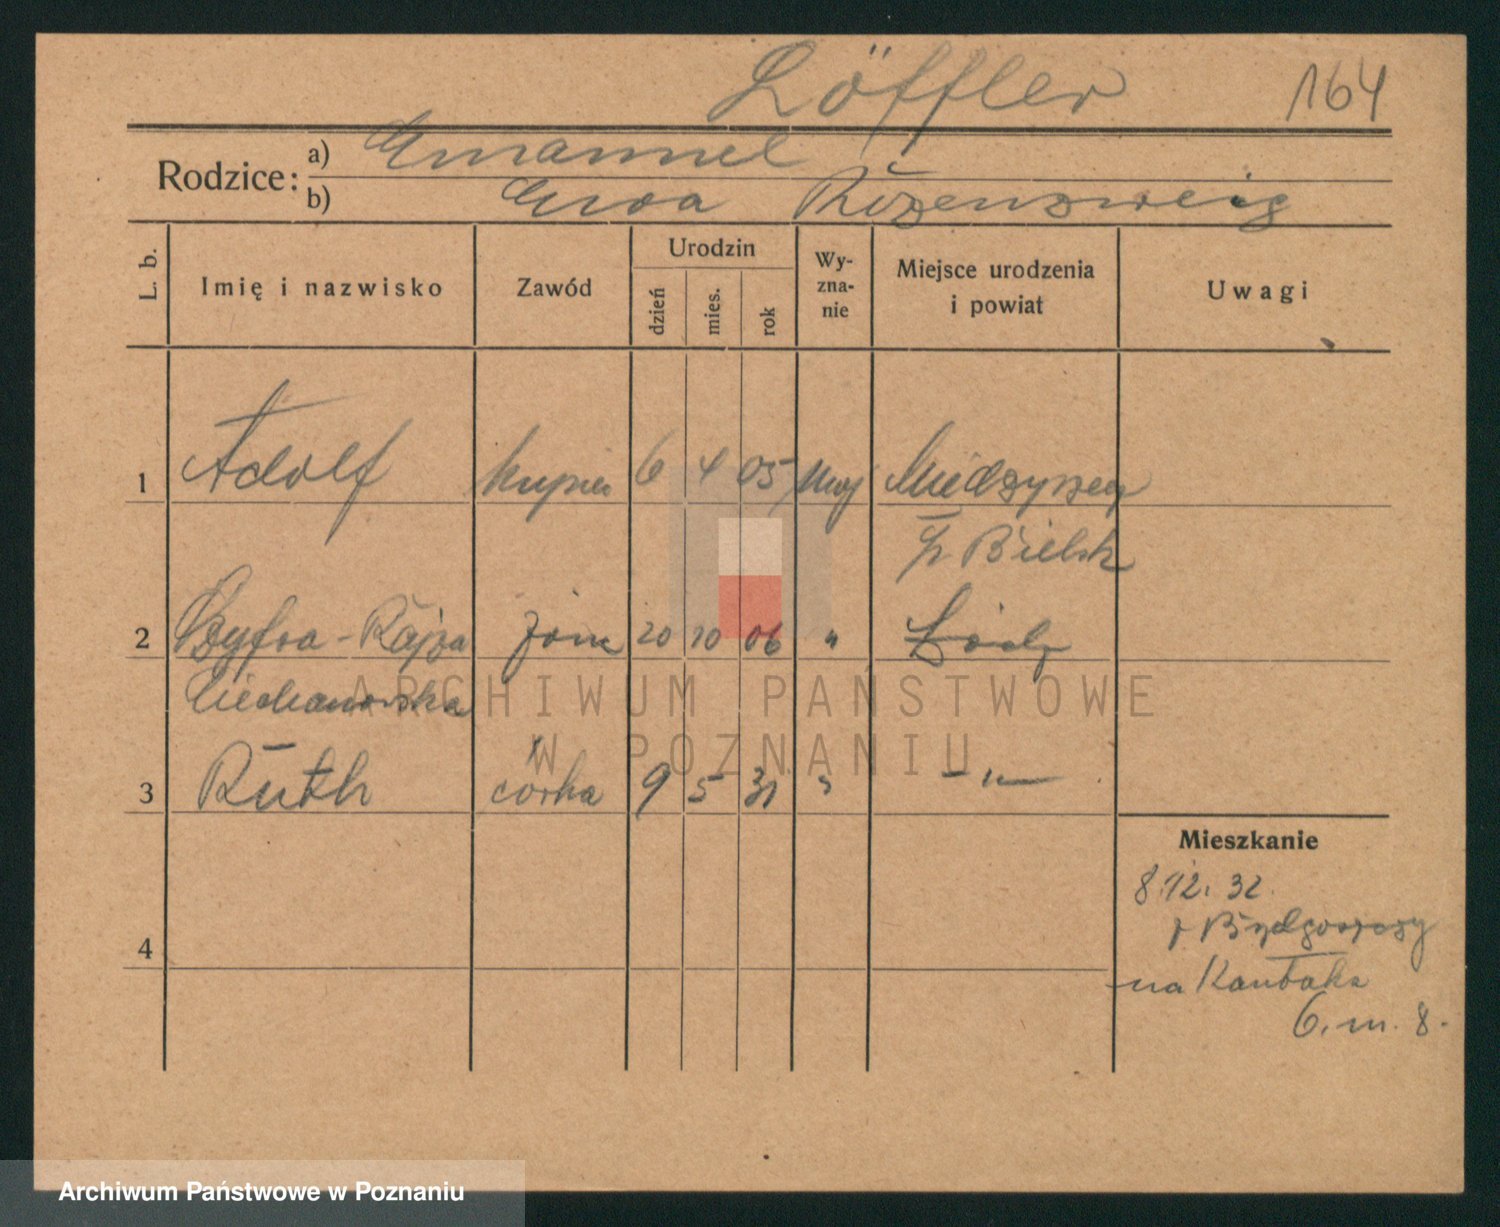 Löffler 164
Rodzice:
a) Emanuel
b) Ewa Rozenzweig
L. b.
Imię i nazwisko
Zawód
Urodzin
dzień
mies.
rok
Wy-
zna-
nie
Miejsce urodzenia
i powiat
Uwagi
1 Adolf kupiec 6 4 05 moj
p. Bielsk
2 Cyfra-Rajza żona 20 10 06 " Łódź
Ciechanowska
3 Ruth córka 9 5 31 " - " -
4
Mieszkanie
8.12.32
z Bydgoszczy
na Kantaka
6. m. 8.
ARCHIWUM PAŃSTWOWE
W POZNANIU
Archiwum Państwowe w Poznaniu